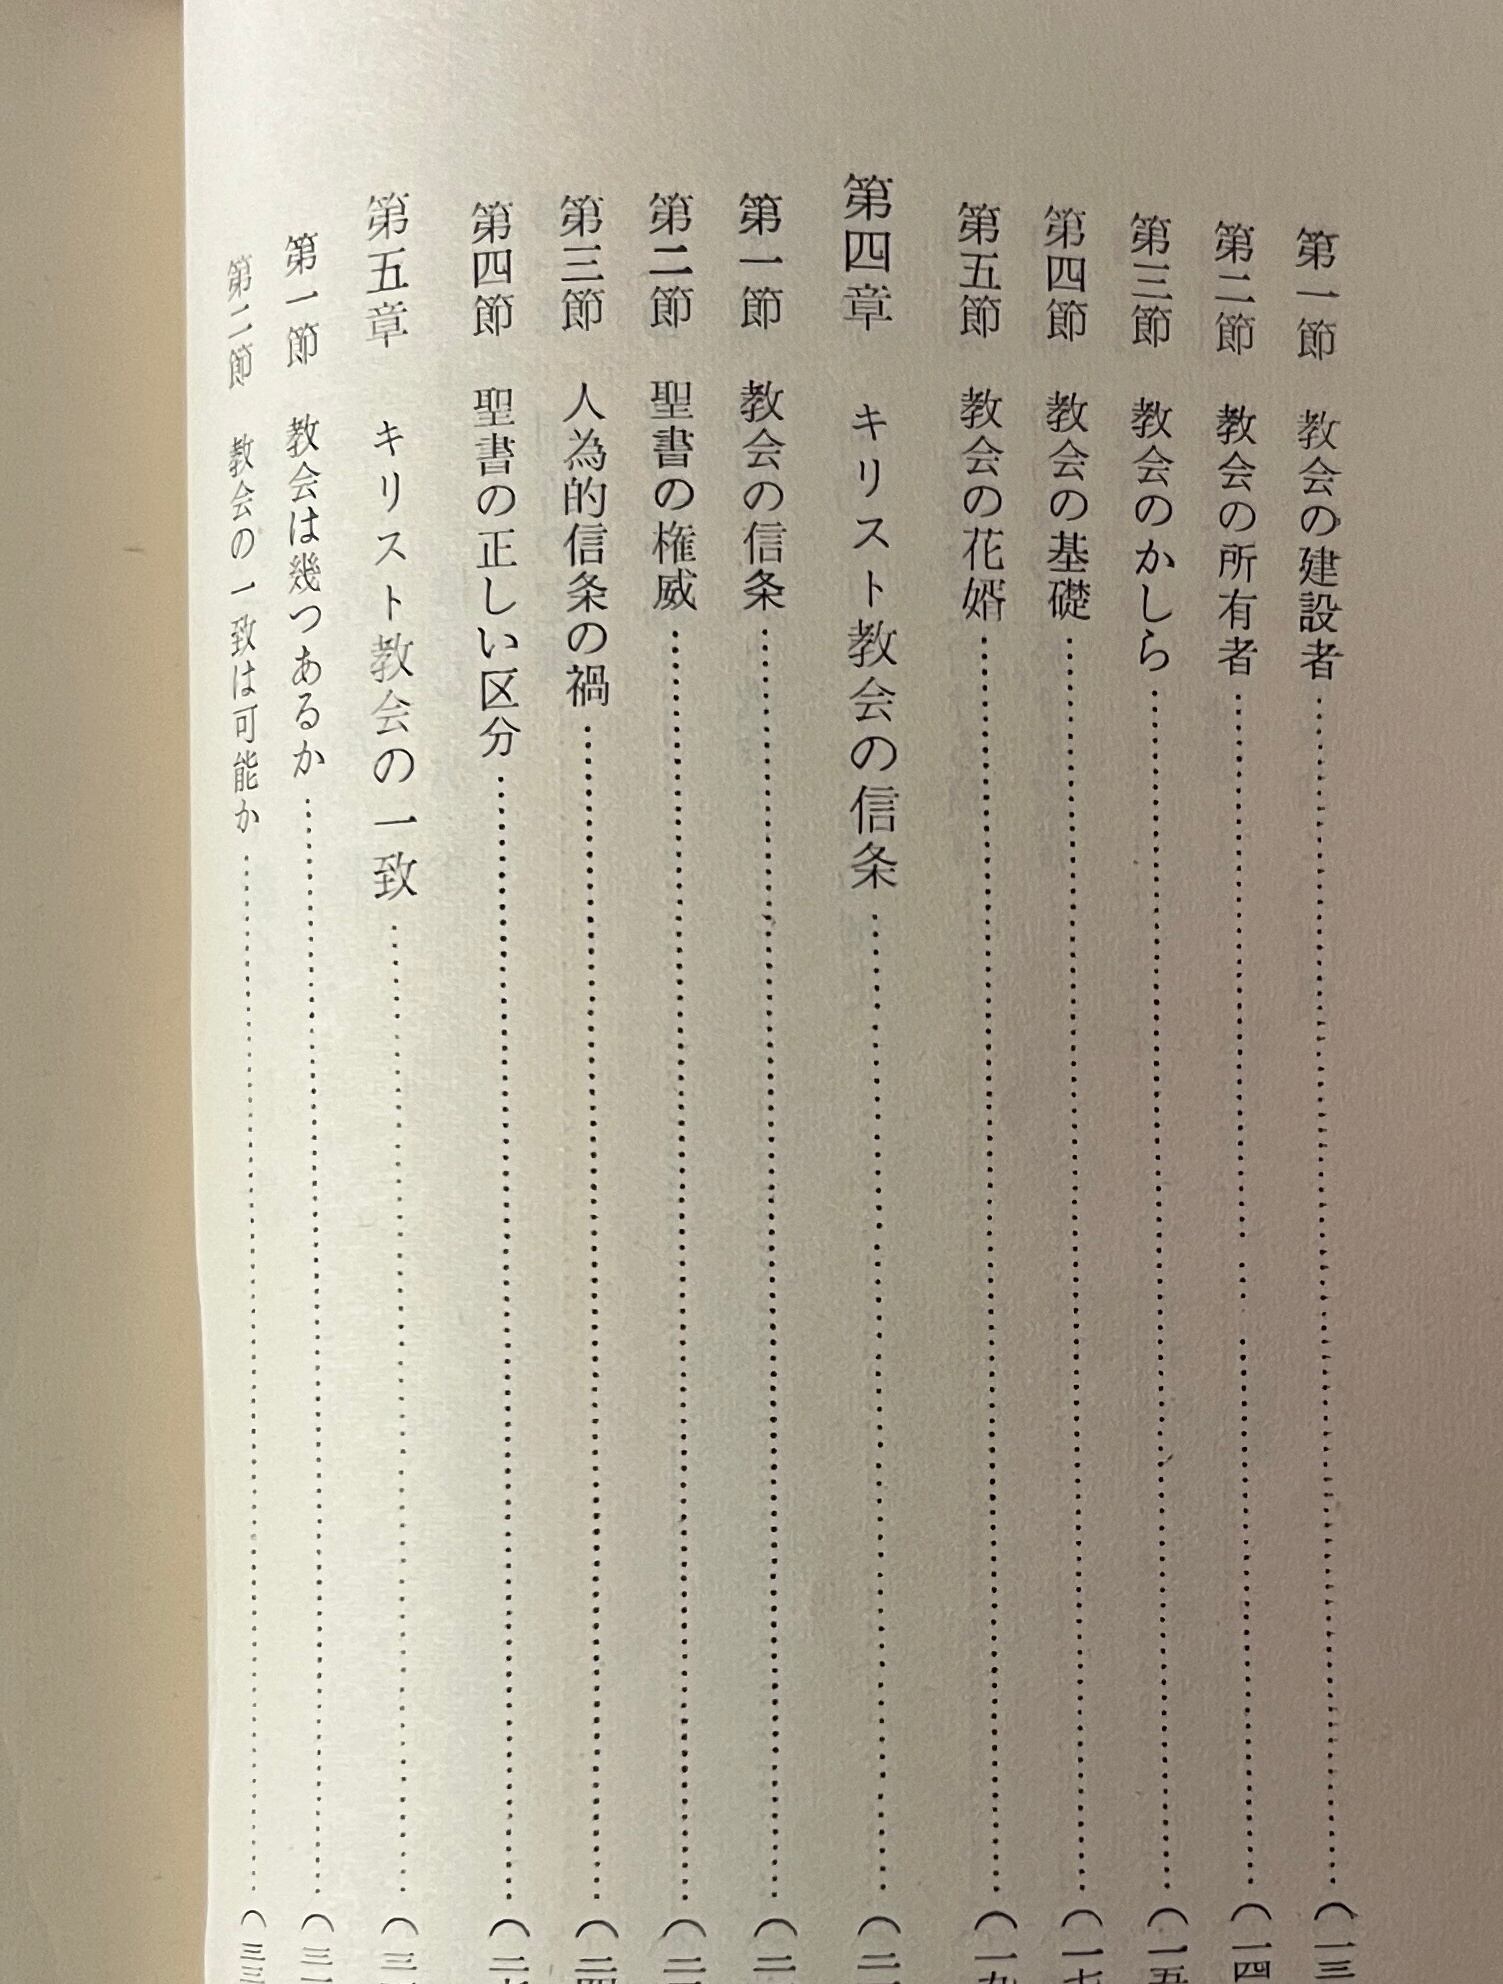 第一節 教会の建設者 (一三
第二節 教会の所有者 (一四
第三節 教会のかしら (一五
第四節 教会の基礎 (一七
第五節 教会の花婿 (一九
第四章 キリスト教会の信条 (二
第一節 教会の信条 (二
第二節 聖書の権威 (二
第三節 人為的信条の禍 (二四
第四節 聖書の正しい区分 (二
第五章 キリスト教会の一致 (三
第一節 教会は幾つあるか (三
第二節 教会の一致は可能か (三三